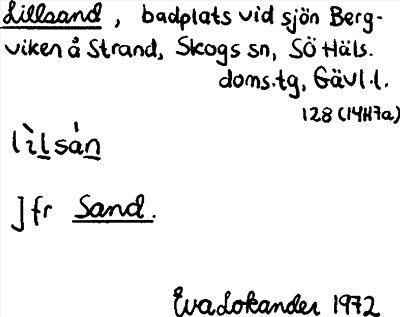 Lillsand, badplats vid sjön Berg-
viken å Strand, Skogs sn, SÖ Häls.
doms.tg, Gävl.l.
128 (14H7a)
lìlsán
Jfr Sand.
Eva Lokander 1972